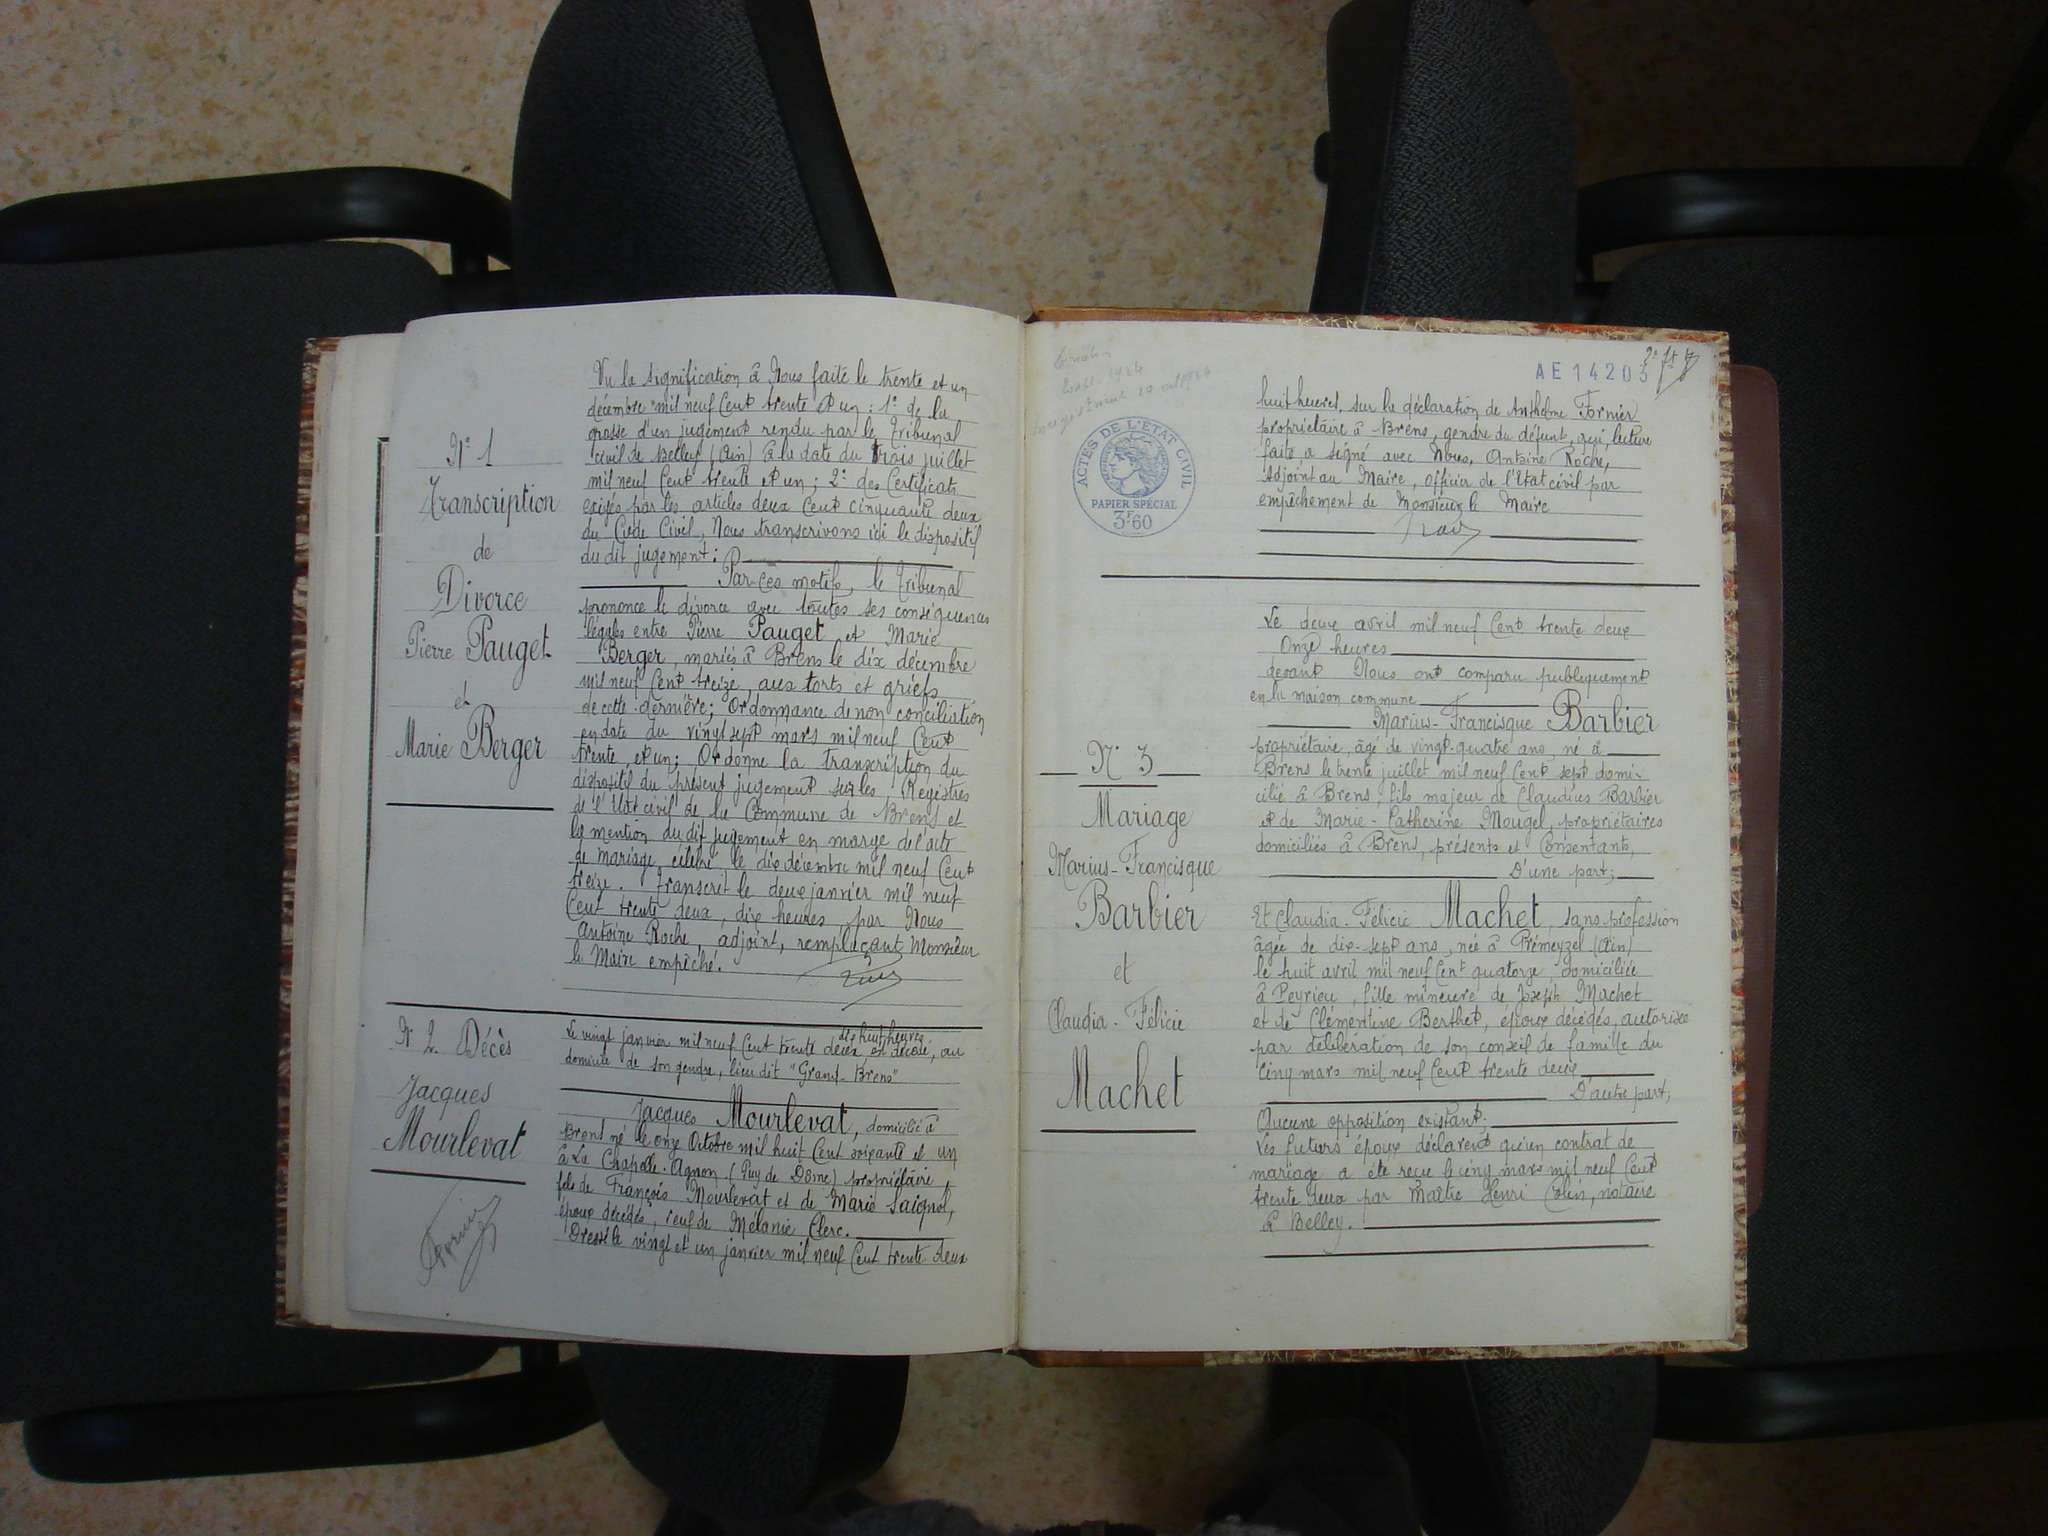 Vu la signification à Nous faite le trente et un
décembre mil neuf Cent trente et un : 1° de la
grosse d'un jugement rendu par le Tribunal
civil de Belley (Ain) à la date du trois juillet
mil neuf Cent trente et un ; 2° des Certificats
exigés par les articles deux Cent cinquante deux
du Code Civil, Nous transcrivons ici le dispositif
du dit jugement :
Par ces motifs, le Tribunal
prononce le divorce avec toutes ses conséquences
légales entre Pierre Pauget et Marie
Berger, mariés à Brens le dix décembre
mil neuf Cent treize, aux torts et griefs
de cette dernière ; Ordonnance de non conciliation
en date du vingt sept mars mil neuf Cent
trente et un ; Ordonne la transcription du
dispositif du présent jugement sur les Registres
de l'Etat civil de la Commune de Brens et
la mention du dit jugement en marge de l'acte
de mariage célébré le dix décembre mil neuf Cent
treize. Transcrit le deux janvier mil neuf
Cent trente deux, dix heures, par Nous
Antoine Roche, adjoint, remplaçant Monsieur
le Maire empêché.
N° 1
Transcription
de
Divorce
Pierre Pauget
et
Marie Berger
N° 2. Décès
Jacques
Mourlevat
dès huit heures
Le vingt janvier mil neuf Cent trente deux est décédé, au
domicile de son gendre, lieu dit "Grand-Brens"
Jacques Mourlevat, domicilié à
Brens né le onze Octobre mil huit Cent soixante et un
à La Chapelle-Agnon (Puy de Dôme) propriétaire,
fils de François Mourlevat et de Marie Saignol,
époux décédés, veuf de Mélanie Clerc.
Dressé le vingt et un janvier mil neuf Cent trente deux
AE 14203
ACTES DE L'ETAT CIVIL
PAPIER SPÉCIAL
3F60
huit heures, sur la déclaration de Anthelme Fornier
propriétaire à Brens, gendre du défunt, qui, lecture
faite a signé avec Nous, Antoine Roche,
Adjoint au Maire, officier de l'Etat civil par
empêchement de Monsieur le Maire
N° 3
Mariage
Marius-Francisque
Barbier
et
Claudia-Félicie
Machet
Le deux avril mil neuf Cent trente deux
Onze heures
devant Nous ont comparu publiquement
en la maison commune
Marius-Francisque Barbier
propriétaire, âgé de vingt-quatre ans né à
Brens le trente juillet mil neuf Cent sept domi-
cilié à Brens, fils majeur de Claudius Barbier
et de Marie-Catherine Mougel, propriétaires
domiciliés à Brens, présents et Consentants,
D'une part ;
Et Claudia-Félicie Machet, sans profession
âgée de dix-sept ans, née à Prémeyzel (Ain)
le huit avril mil neuf Cent quatorze domiciliée
à Peyrieu, fille mineure de Joseph Machet
et de Clémentine Berthet, époux décédés, autorisée
par délibération de son conseil de famille du
Cinq mars mil neuf Cent trente deux
D'autre part ;
Aucune opposition existant ;
Les futurs époux déclarent qu'un contrat de
mariage a été reçu le cinq mars mil neuf Cent
trente deux par Maître Henri Colin, notaire
à Belley.